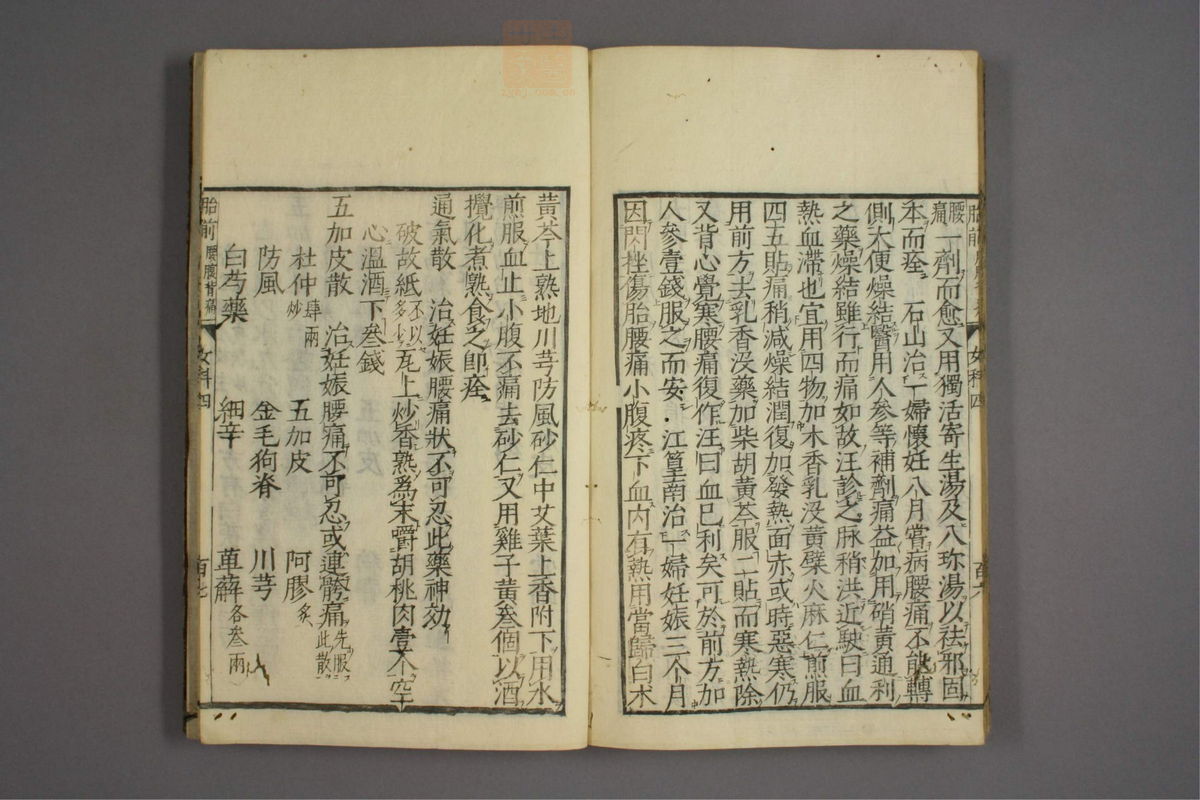 腰痛一劑而愈又用獨活寄生湯及八珎湯以祛邪固
本而痊　石山治一婦懷妊八月嘗病腰痛不能轉
側大便燥結醫用人參等補劑痛益加用硝黃通利
之藥燥結雖行而痛如故汪診之脉稍洪近駛曰血
熱血滯也宜用四物加木香乳没黃檗火麻仁煎服
四五貼痛稍减燥結潤復加發熱面赤或時惡寒仍
用前方去乳香没藥加柴胡黃芩服二貼而寒熱除
又背心覺寒腰痛復作汪曰血已利矣可於前方加
人參壹錢服之而安．江篁南治一婦妊娠三个月
因閃挫傷胎腰痛小腹疼下血内有熱用當歸白术
黃芩上熟地川芎防風砂仁中艾葉上香附下用水
煎服血止小腹不痛去砂仁又用雞子黃叁個以酒
攪化煮熟食之卽痊
通氣散　治妊娠腰痛狀不可忍此藥神効
破故紙不以多少瓦上炒香熟爲末嚼胡桃肉壹个空
心溫酒下叁錢
五加皮散　治妊娠腰痛不可忍或連骻痛先服此散
杜仲肆兩炒　五加皮　阿膠炙
防風　金毛狗脊　川芎
白芍藥　細辛　萆薢各叁兩
胎前　腰腹背痛　女科四　百七